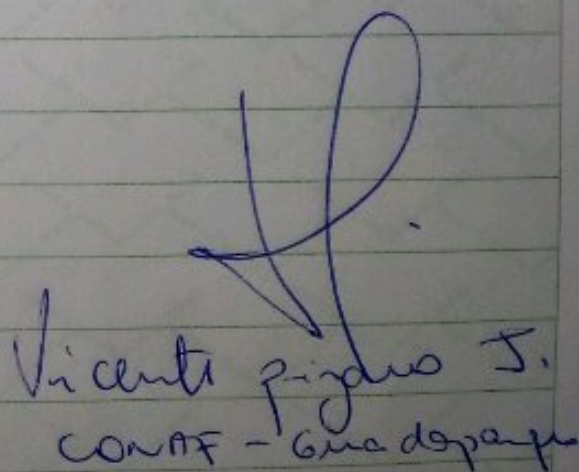 Vicente Pizarro J.
CONAF - Guardaparque